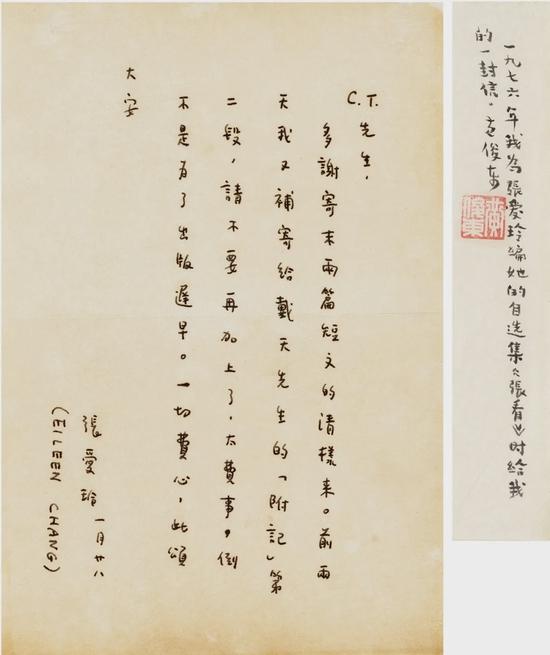 C.T.先生，
多謝寄来兩篇短文的清樣来。前兩
天我又補寄給戴天先生的「附記」第
二段，請不要再加上了，太費事，倒
不是為了出版遲早。一切費心，此頌
大安
張愛玲 一月廿八
(EILEEN CHANG)
一九七六年我為張愛玲編她的自选集《張看》时给我
的一封信。黄俊东
黄俊東